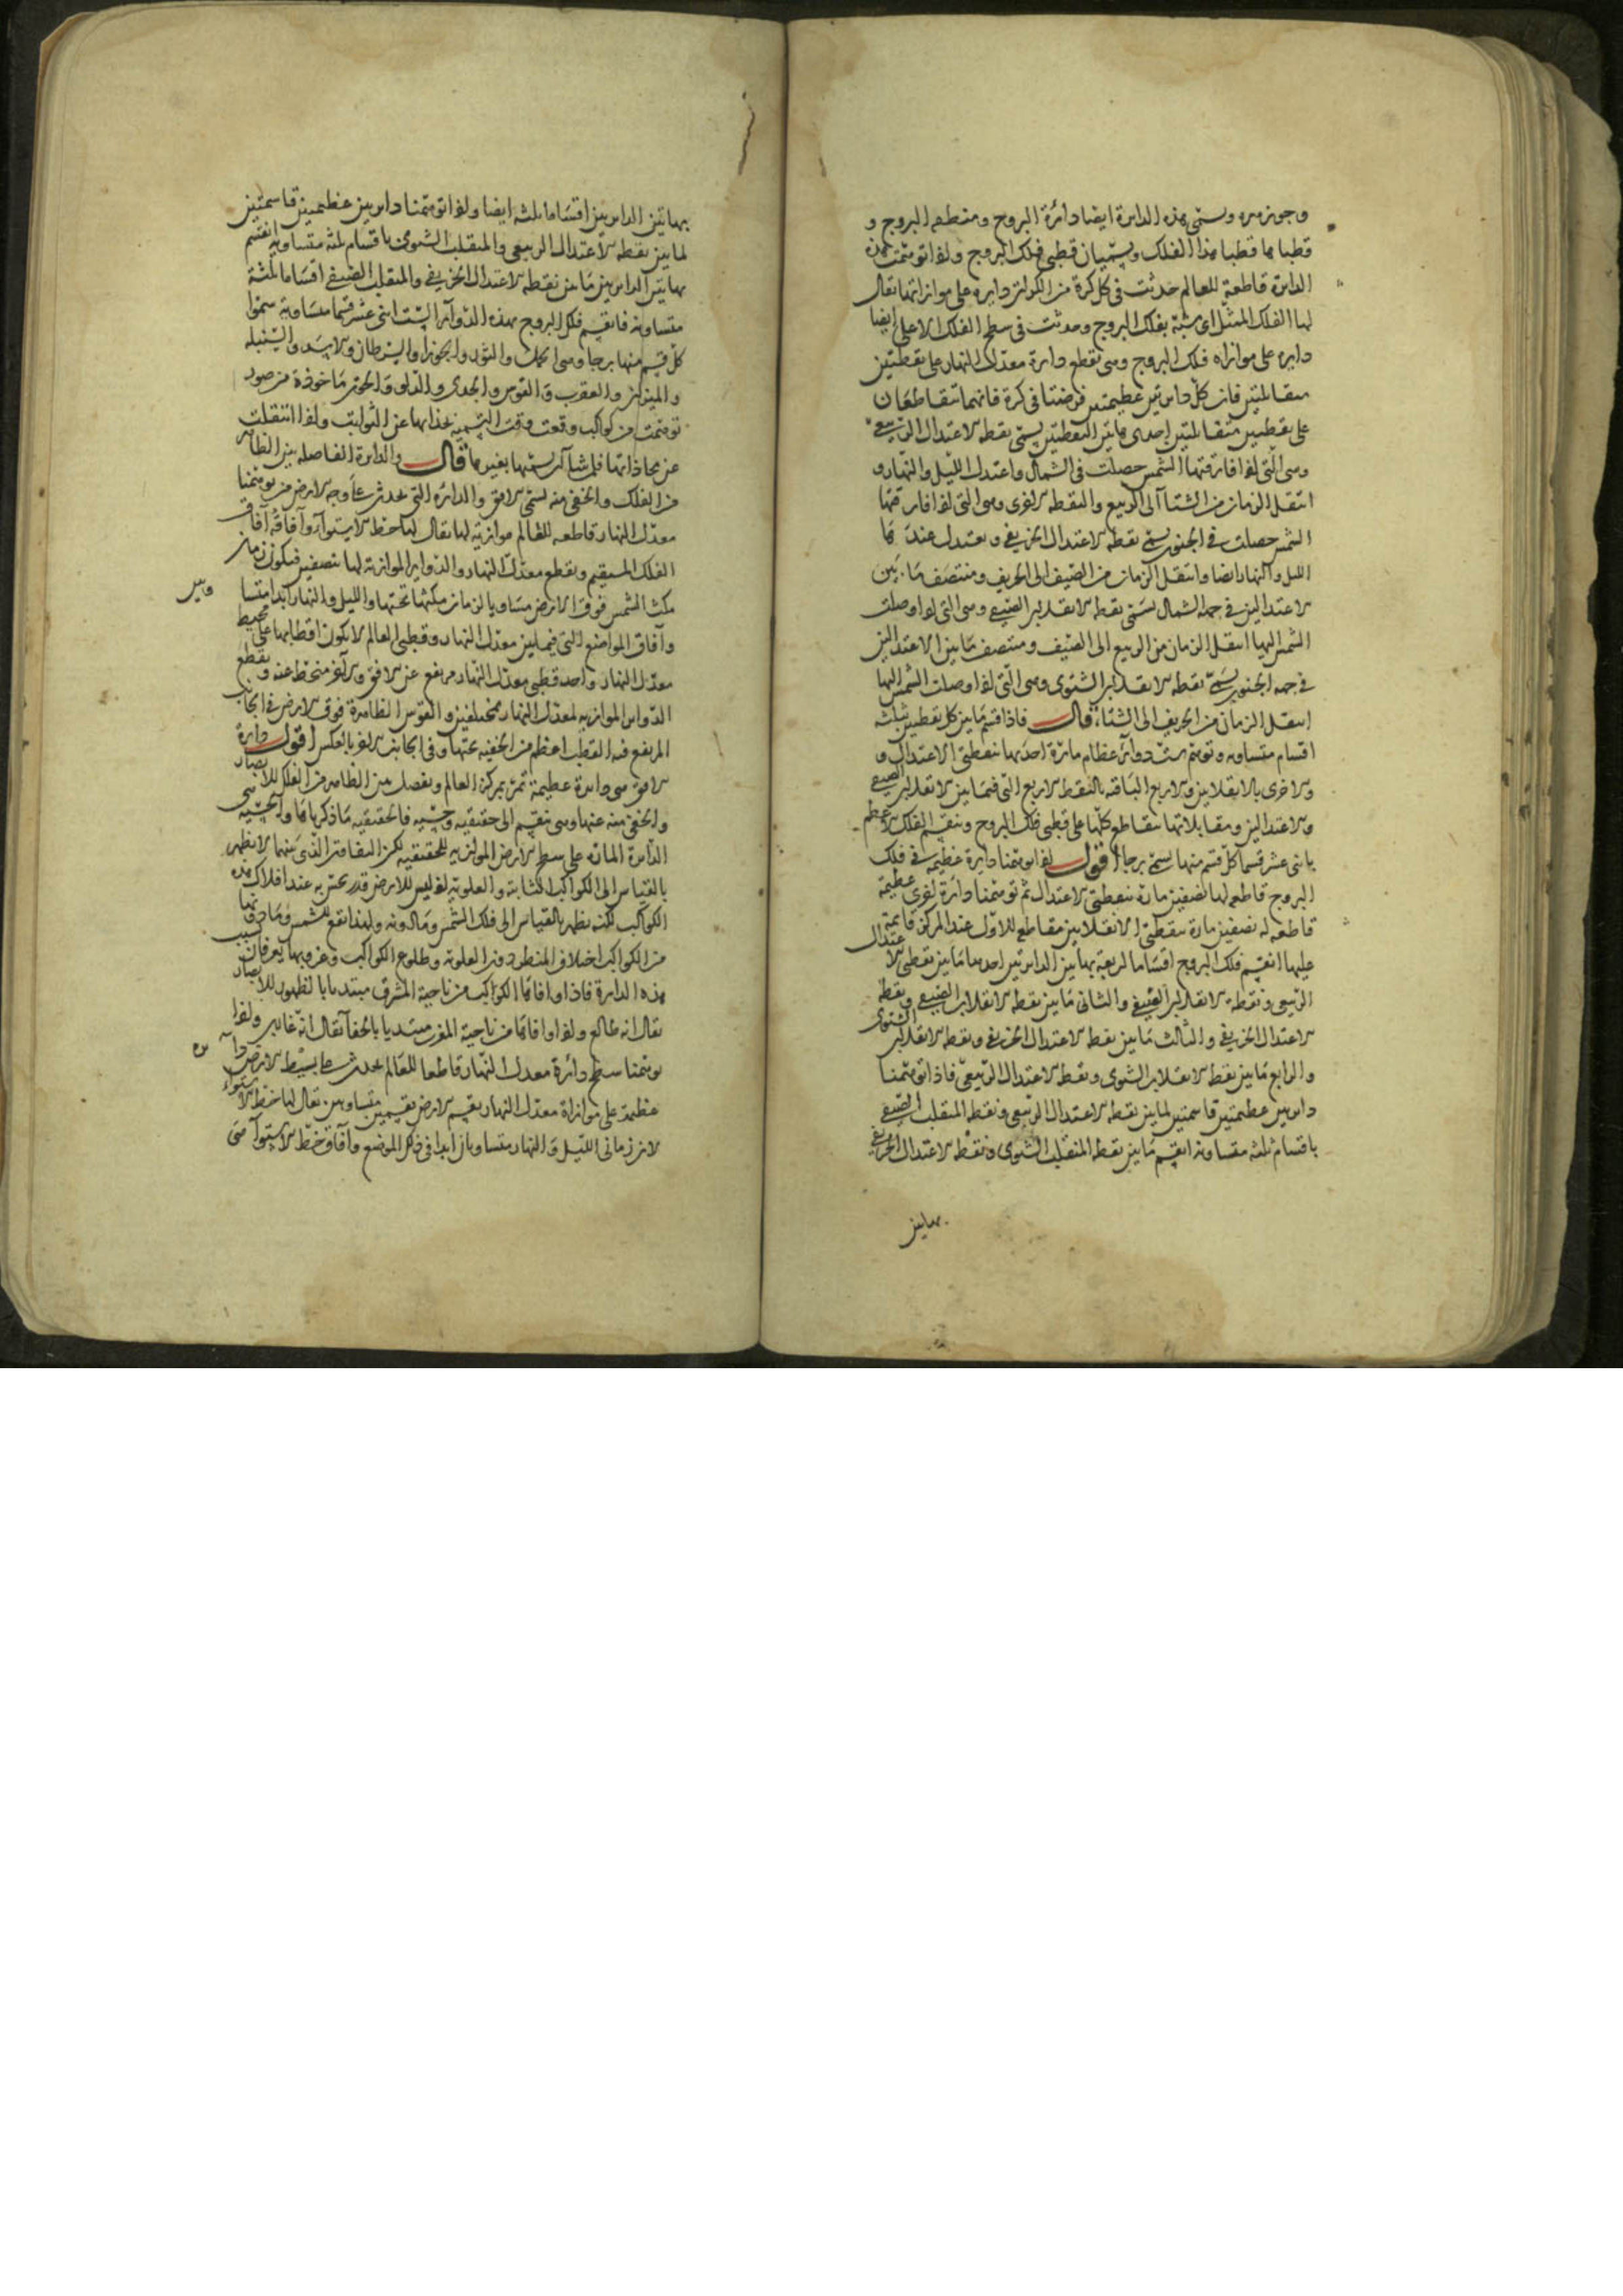 وجوزهره وسمى هذه الدايرة ايضا دائرة البروج ومنطقه البروج و
قطباها قطبا هذا الفلك ويسميان قطبى فلك البروج واذا توهمت هذه
الدايرة قاطعة للعالم حدثت فى كل كرة من الكرات دايره على موازاتها يقال
لها الفلك الممثل اى شبه بفلك البروج وحدثت فى سطح الفلك الاعلى ايضا
دايره على موازاه فلك البروج وهى تقطع دايرة معدل النهار على نقطتين
متقابلتين فان كل دايرتين عظيمتين فرضتا فى كرة فانهما تتقاطعان
على نقطتين متقابلتين احدى هاتين النقطتين يسمى نقطه الاعتدال الربيعى
وهى التى اذا فارقتها الشمس حصلت فى الشمال واعتدل الليل والنهار و
انتقل الزمان من الشتا الى الربيع والنقطه الاخرى وهى التى اذا فارقتها
الشمس حصلت فى الجنوب يسمى نقطه الاعتدال الخريفى ويعتدل عندها
الليل والنهار ايضا وانتقل الزمان من الصيف الى الخريف ومنتصف ما بين
الاعتدالين فى جهه الشمال يسمى نقطه الانقلاب الصيفى وهى التى اذا وصلت
الشمس اليها انتقل الزمان من الربيع الى الصيف ومنتصف ما بين الاعتدالين
فى جهه الجنوب يسمى نقطه الانقلاب الشتوى وهى التى اذا وصلت الشمس اليها
انتقل الزمان من الخريف الى الشتاء قال فاذا قسم ما بين كل نقطتين بثلثه
اقسام متساويه وتوهم ست دوائر عظام مارة احدها بنقطتى الاعتدال و
الاخرى بالانقلابين والاربع الباقيه بالنقط الاربع التى فيما بين الانقلاب الصيفى
والاعتدالين ومقابلاتها تتقاطع كلها على قطبى فلك البروج وينقسم الفلك الاعظم
باثنى عشر قسما كل قسم منها يسمى برجا اقول اذا توهمنا دايرة عظيمه فى فلك
البروج قاطعه لها نصفين مارة بنقطتى الاعتدال ثم توهمنا دائرة اخرى عظيمة
قاطعه له نصفين مارة بنقطتى الانقلابين مقاطع للاول عند المركز قايمة
عليها انقسم فلك البروج اقساما اربعة بهاتين الدايرتين احدها ما بين نقطتى الاعتدال
الربيعى ونقطه الانقلاب الصيفى والثانى ما بين نقطه الانقلاب الصيفى ونقطه
الاعتدال الخريفى والثالث ما بين نقطه الاعتدال الخريفى ونقطه الانقلاب الشتوى
والرابع ما بين نقطه الانقلاب الشتوى ونقطه الاعتدال الربيعى فاذا توهمنا
دايرتين عظيمتين قاسمتين لما بين نقطه الاعتدال الربيعى ونقطه المنقلب الصيفى
باقسام ثلثه متساويه انقسم ما بين نقطه المنقلب الشتوى ونقطه الاعتدال الخريفى
بهاتين
بهاتين الدايرتين اقساما ثلثه ايضا واذا توهمنا دايرتين عظيمتين قاسمتين
لما بين نقطه الاعتدال الربيعى والمنقلب الشتوى باقسام ثلثه متساويه انقسم
بهاتين الدايرتين ما بين نقطه الاعتدال الخريفى والمنقلب الصيفى اقساما ثلثة
متساويه فانقسم فلك البروج بهذه الدوائر الست اثنى عشر قسما متساوية سموا
كل قسم منها برجا وهى الحمل والثور والجوزا والسرطان والاسد والسنبله
والميزان والعقرب والقوس والجدى والدلو والحوت ماخوذة من صور
توهمت من كواكب وقعت وقت التسميه بحذائها من الثوابت واذا انتقلت
عن محاذاتها فلمن شا ان يسميها بغيرها قال والدايرة الفاصله بين الظاهر
من الفلك والخفى منه تسمى الافق والدائره التى تحدث على وجه الارض من توهمنا
معدل النهار قاطعه للعالم موازيه لها يقال لها خط الاستواء وآفاقه آفاق
الفلك المستقيم ويقطع معدل النهار والدواير الموازية لها بنصفين فيكون زمان
مكث الشمس فوق الارض مساويا لزمان مكثها تحتها والليل والنهار ابدا متسا ويين
وآفاق المواضع التى فيما بين معدل النهار وقطبى العالم لا يكون اقطابها على محيط
معدل النهار واحد قطبى معدل النهار مرتفع عن الافق والاخر منحط عنه ويقطع
الدواير الموازيه لمعدل النهار بمختلفين والقوس الظاهرة فوق الارض فى الجانب
المرتفع فيه القطب اعظم من الخفيه تحتها وفى الجانب الاخر بالعكس اقول دايرة
الافق هى دايرة عظيمة تمر بمركز العالم ويفصل بين الظاهر من الفلك للابصار
والخفى منه عنها وهى تنقسم الى حقيقيه وحسيه فالحقيقيه ما ذكرناها والحسيه هى
الدايرة المارة على سطح الارض الموازيه للحقيقيه لكن التفاوت الذى بينهما لا يظهر
بالقياس الى الكواكب الثابته والعلويه اذ ليس للارض قدر يحس به عند افلاك هذه
الكواكب لكنه يظهر بالقياس الى فلك الشمس وما دونه ولهذا يقع للشمس وما دونها
من الكواكب اختلاف المنظر دون العلويه وطلوع الكواكب وغروبها يعرفان بسبب
هذه الدايرة فاذا وافاها الكواكب من ناحية المشرق مبتديا بالظهور للابصار
يقال انه طالع واذا وافاها من ناحية المغرب مبتديا بالخفا يقال انه غارب واذا
توهمنا سطح دائرة معدل النهار قاطعا للعالم يحدث على بسيط الارض دايره
عظيمة على موازاة معدل النهار يقسم الارض بقسمين متساويين يقال لها خط الاستواء
لان زمانى الليل والنهار متساويان ابدا فى ذلك الموضع وآفاق خط الاستوآ هى